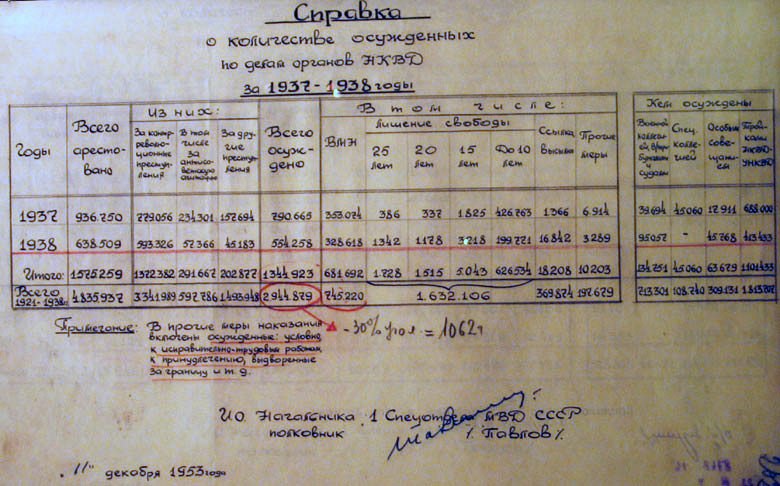 Справка
о количестве осужденных
по делам органов НКВД
за 1937-1938 годы
Годы Всего арестовано Из них: За контрреволюционные преступления В том числе за антисоветскую агитацию За другие преступления Всего осуждено В том числе: ВМН Лишение свободы 25 лет 20 лет 15 лет До 10 лет Ссылка высылка Прочие меры Кем осуждены Военной коллегией, Спец. коллегией Особым совещанием Тройками НКВД-УНКВД
1937 936.750 779056 234301 157694 790.665 353.074 386 337 1825 426.763 1366 6.914 39.694 45.060 17.911 688000
1938 638.509 593.326 57.366 45.183 554.258 328.618 1342 1178 3218 199.771 16842 3289 95057 - 45.768 413433
Итого: 1575259 1372382 291.667 202877 1344923 681.692 1.728 1.515 5.043 626534 18208 10.203 134.751 45.060 63.679 1101433
Всего 1921-1938гг 4.835.937 3341989 597.786 1493948 2944.879 745.220 1.632.106 369.874 197.679 713.301 108.740 309.131
Примечание: В прочие меры наказания
включены осужденные: условно,
к исправительно-трудовым работам,
к принудлечению, выдворенные
за границу и т. д.
-30% угол = 1062т
ИО Начальника 1 Спецотдела МВД СССР
полковник /Павлов/
"11" декабря 1953 года